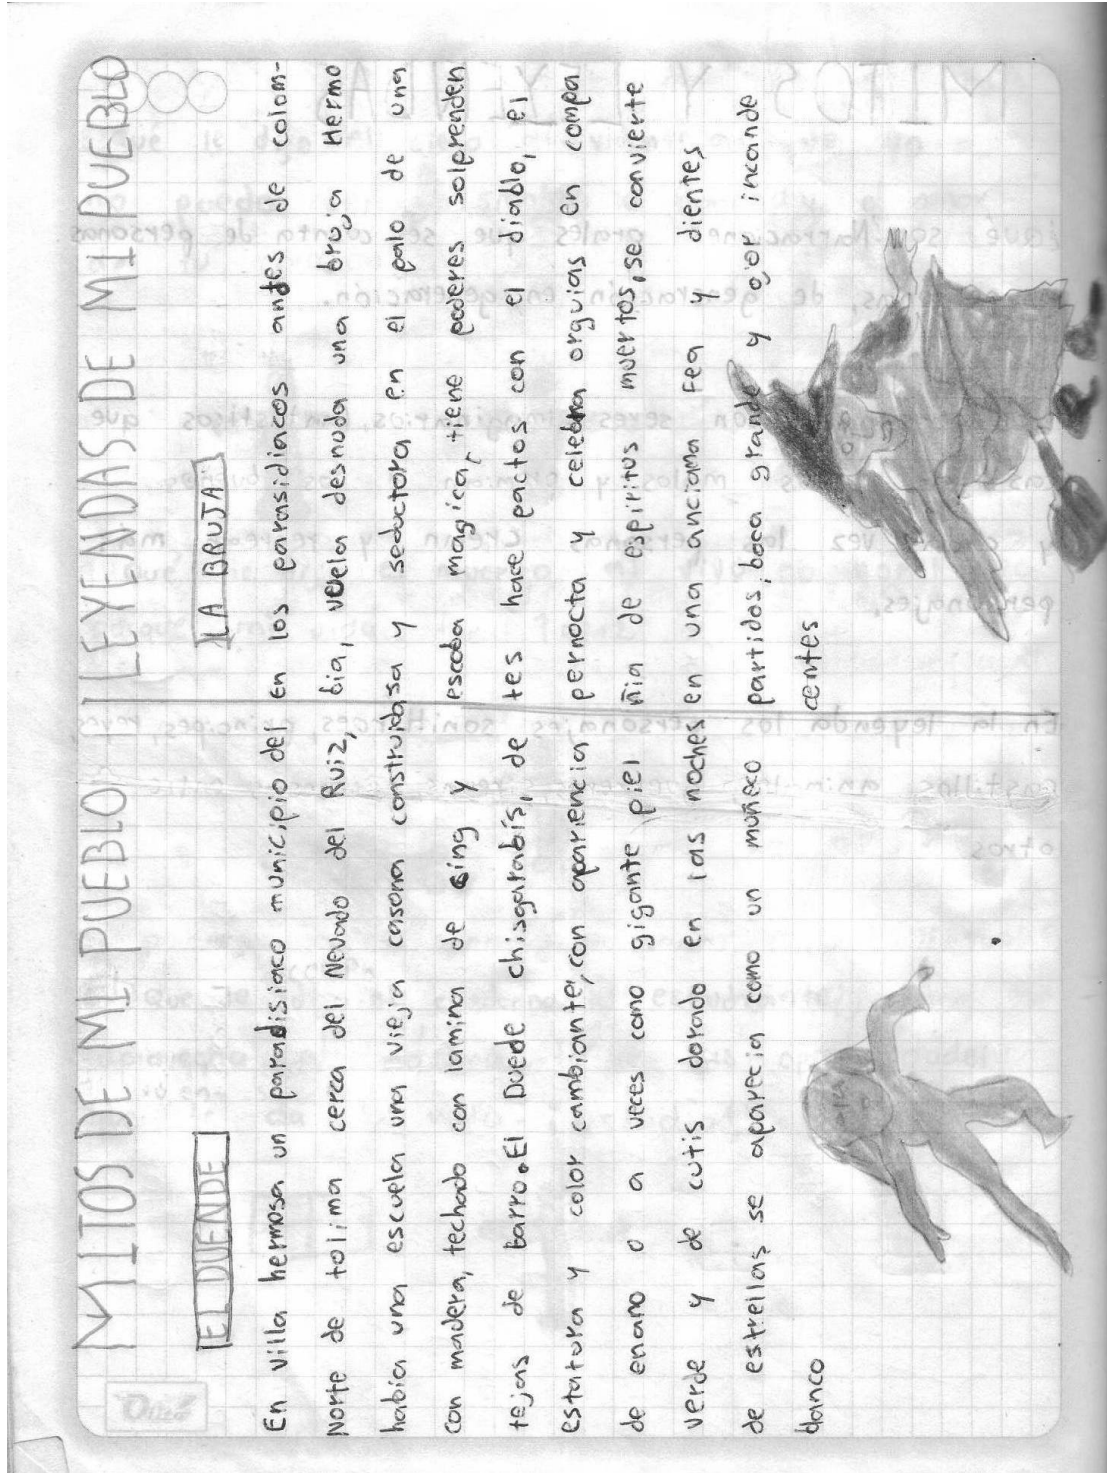 MITOS DE MI PUEBLO
EL DUENDE
En villa hermosa un paradisiaco municipio del
Norte de tolima cerca del Nevado del Ruiz,
había una escuela una vieja casona construida
con madera, techado con lamina de sing y
tejas de barro. El Duede chisgarabís, de
estatura y color cambiante, con apariencia
de enano o a veces como gigante piel
verde y de cutis dorado en las noches
de estrellas se aparecia como un muñeco
blanco
LEYENDAS DE MI PUEBLO
LA BRUJA
en los parasidiacos andes de colom-
bia, vuela desnuda una bruja Hermo
sa y seductora en el palo de una
escoba magica, tiene poderes solprenden
tes hace pactos con el diablo, el
pernocta y celebra orguias en compa
ñia de espiritus muertos, se convierte
en una anciana fea y dientes
partidos, boca grande y ojor incande
centes